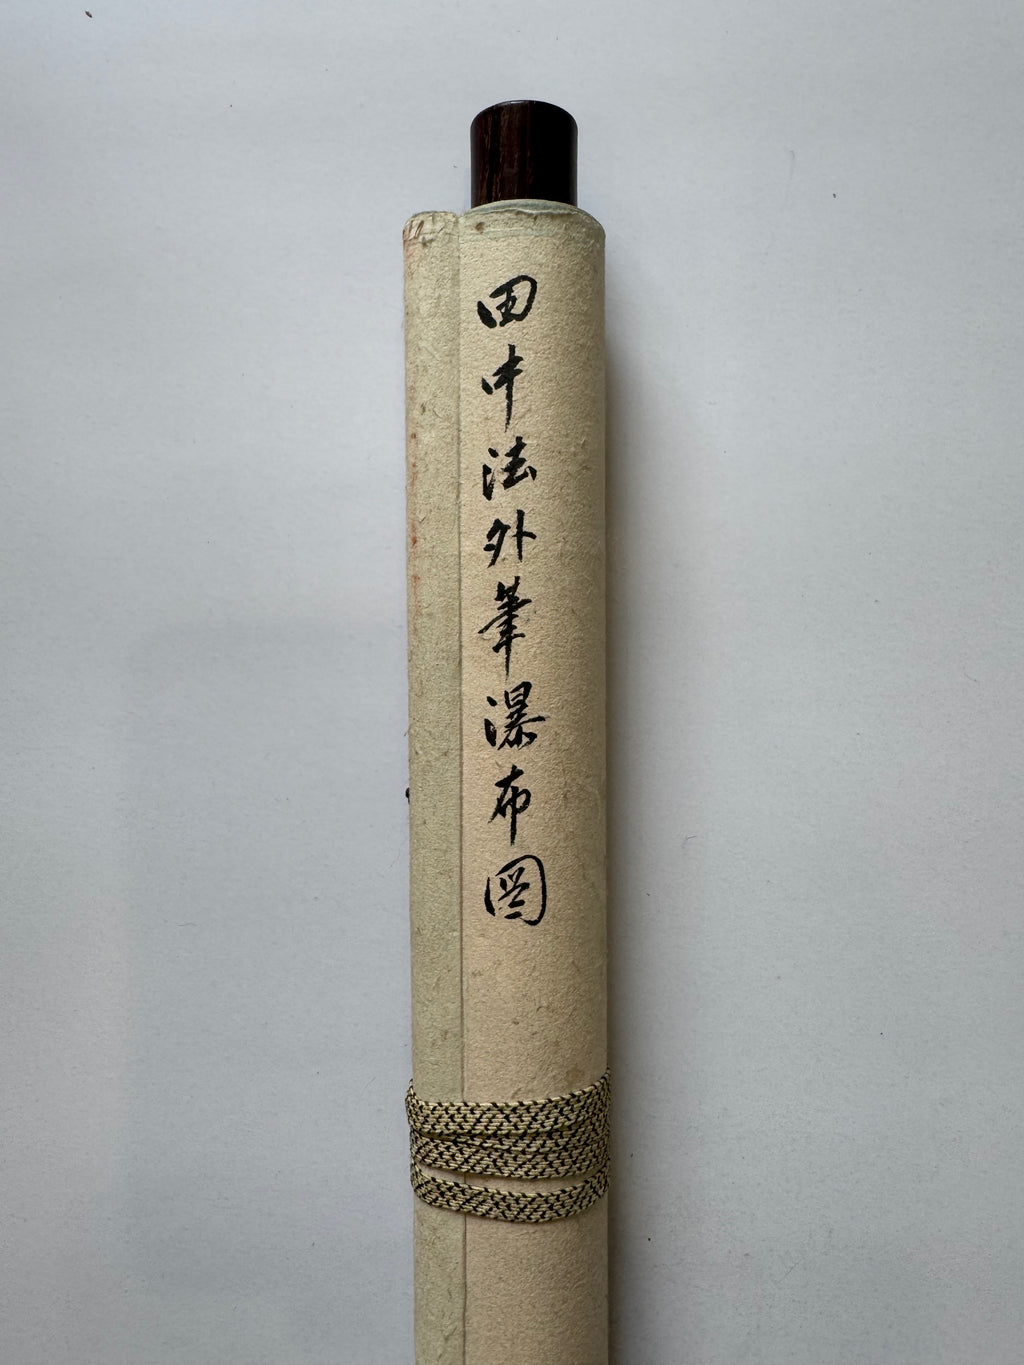 田中法外筆瀑布図